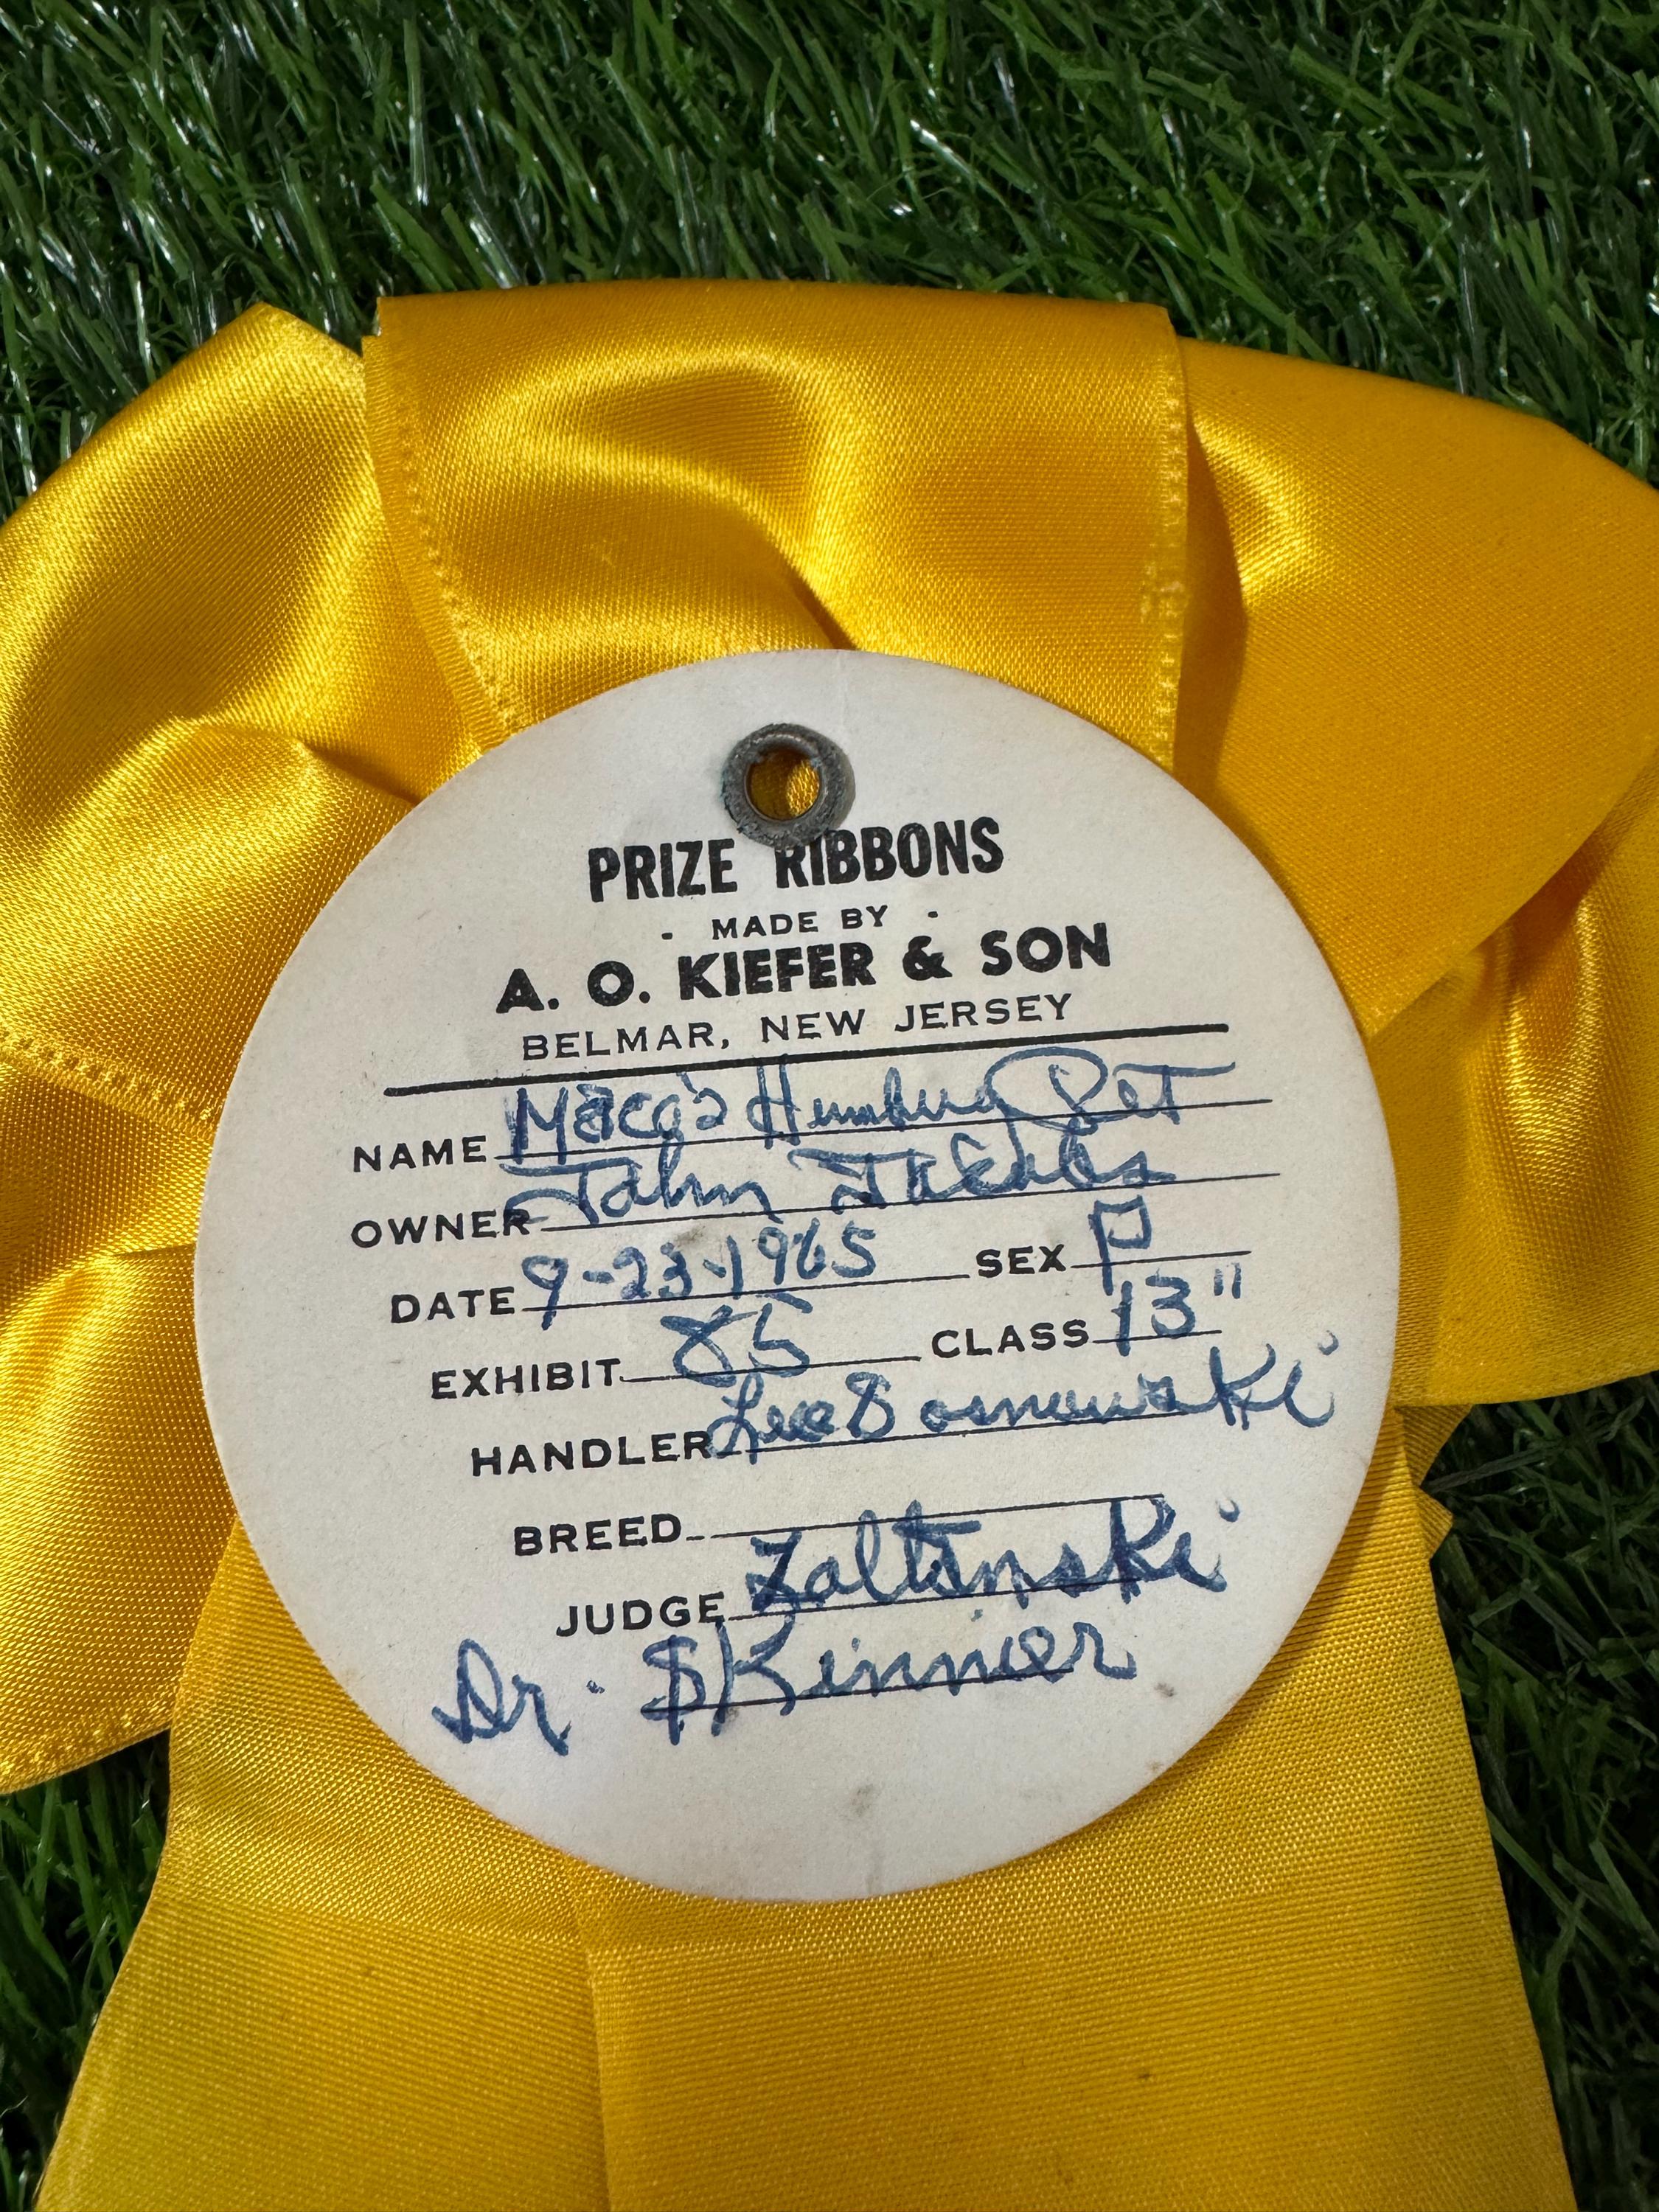 PRIZE RIBBONS
- MADE BY -
A. O. KIEFER & SON
BELMAR, NEW JERSEY
NAME Maca's Humbug Pet
OWNER John
DATE 9-23-1965 SEX
EXHIBIT 85 CLASS 13"
HANDLER Lee
BREED
JUDGE Zaltinski
Dr. Skinner